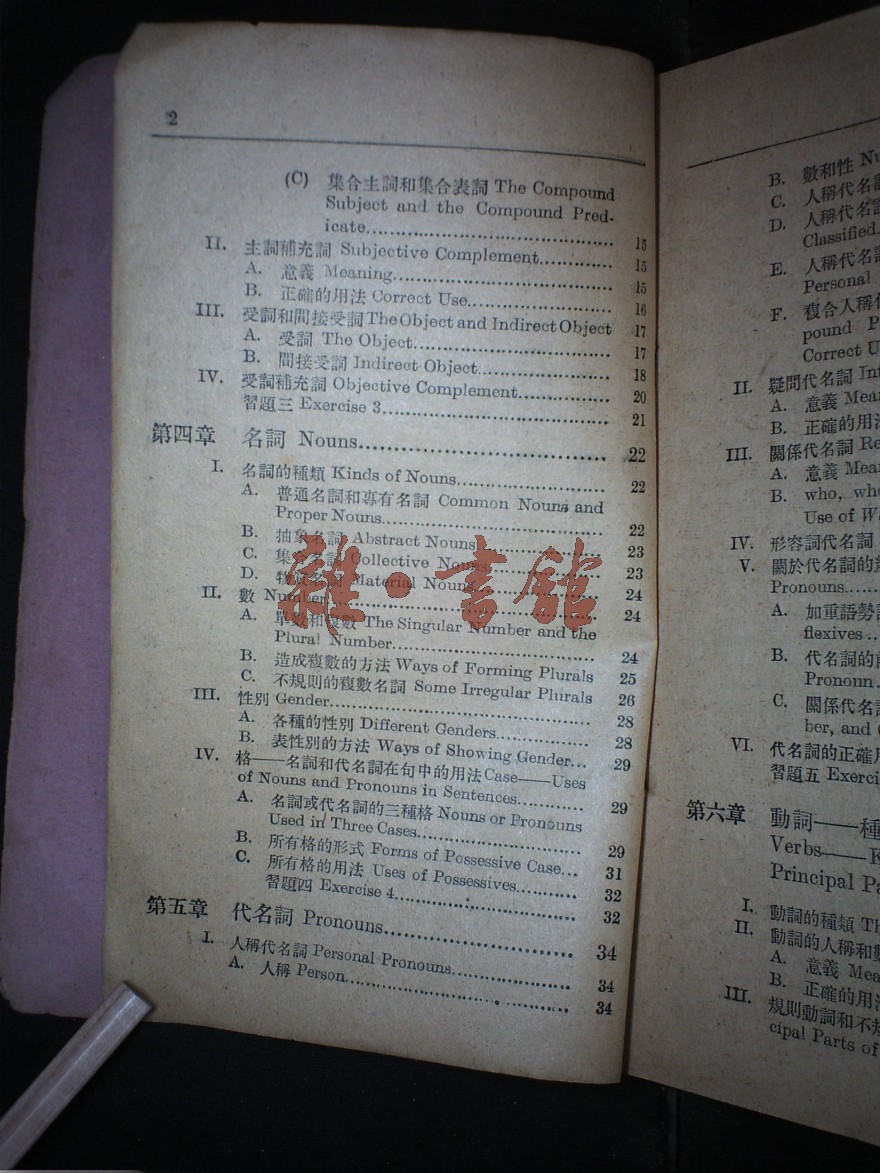 2
(C) 集合主詞和集合表詞 The Compound
Subject and the Compound Pred-
icate........................................ 15
II. 主詞補充詞 Subjective Complement............ 15
A. 意義 Meaning.................................... 15
B. 正確的用法 Correct Use........................ 16
III. 受詞和間接受詞 The Object and Indirect Object 17
A. 受詞 The Object................................. 17
B. 間接受詞 Indirect Object..................... 18
IV. 受詞補充詞 Objective Complement............... 20
習題三 Exercise 3.................................... 21
第四章 名詞 Nouns....................................... 22
I. 名詞的種類 Kinds of Nouns........................ 22
A. 普通名詞和專有名詞 Common Nouns and
Proper Nouns.................................... 22
B. 抽象名詞 Abstract Nouns..................... 23
C. 集合名詞 Collective Nouns.................. 23
D. 物質名詞 Material Nouns..................... 24
II. 數 Number............................................. 24
A. 單數和複數 The Singular Number and the
Plural Number................................. 24
B. 造成複數的方法 Ways of Forming Plurals 25
C. 不規則的複數名詞 Some Irregular Plurals 26
III. 性別 Gender.......................................... 28
A. 各種的性別 Different Genders............... 28
B. 表性別的方法 Ways of Showing Gender... 29
IV. 格——名詞和代名詞在句中的用法 Case——Uses
of Nouns and Pronouns in Sentences............ 29
A. 名詞或代名詞的三種格 Nouns or Pronouns
Used in Three Cases........................... 29
B. 所有格的形式 Forms of Possessive Case... 31
C. 所有格的用法 Uses of Possessives......... 32
習題四 Exercise 4.................................... 32
第五章 代名詞 Pronouns................................. 34
I. 人稱代名詞 Personal Pronouns.................. 34
A. 人稱 Person....................................... 34
雜·書館
B. 數和性
C. 人稱代名
D. 人稱代名
Classified
E. 人稱代名
Personal
F. 複合人稱
pound
Correct
II. 疑問代名詞
A. 意義
B. 正確的用法
III. 關係代名詞
A. 意義
B. who,
Use of
IV. 形容詞代名詞
V. 關於代名詞的
Pronouns......
A. 加重語勢
flexives...
B. 代名詞的
Pronoun.
C. 關係代名
ber, and
VI. 代名詞的正確
習題五
第六章 動詞——種
Verbs——
Principal
I. 動詞的種類
II. 動詞的人稱和數
A. 意義
B. 正確的用法
III. 規則動詞和不規
cipal Parts of